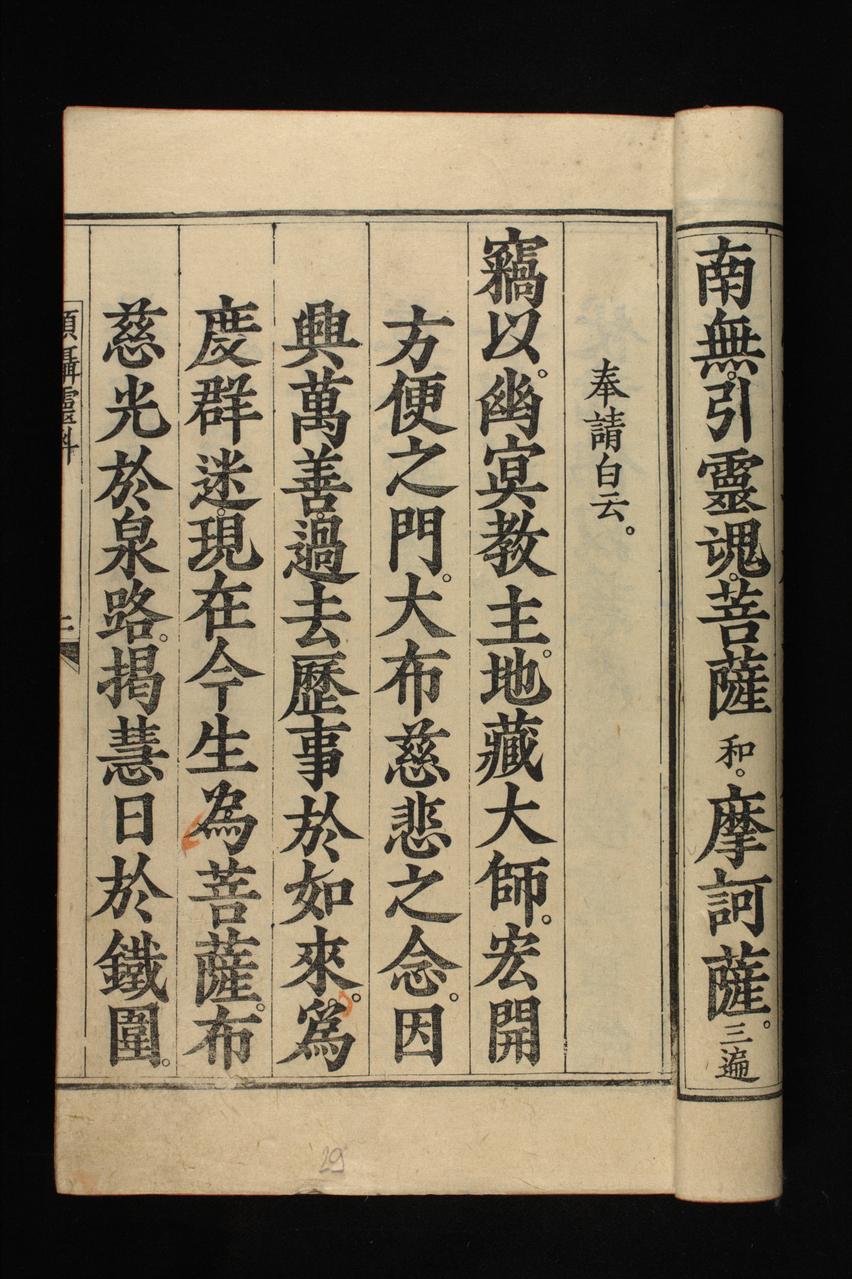 南無。引靈魂。菩薩和。摩訶薩。三遍
奉請白云。
竊以。幽冥教主。地藏大師。宏開
方便之門。大布慈悲之念。因
興萬善。過去歷事於如來。爲
度群迷。現在今生為菩薩。布
慈光於泉路。揭慧日於鐵圍。
29